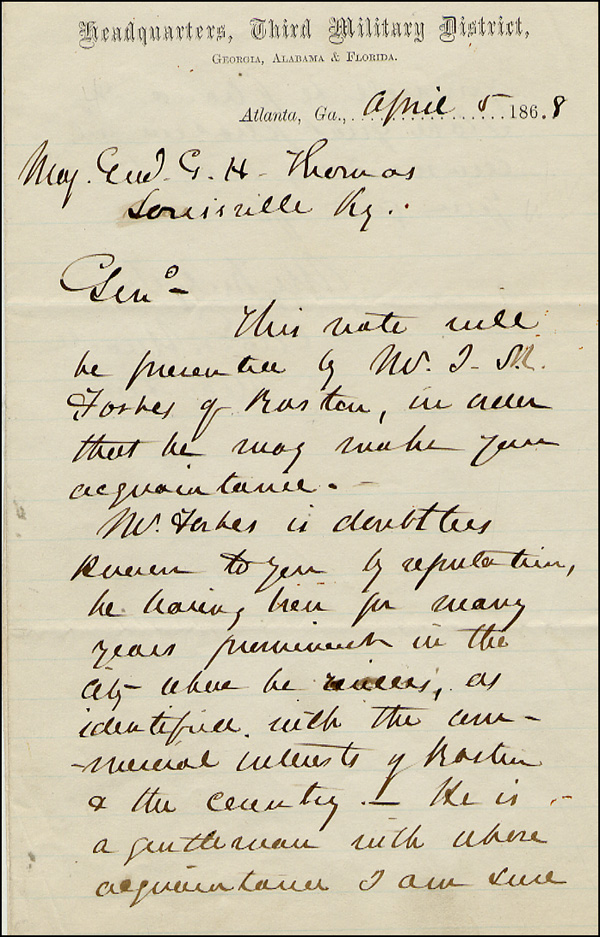 Headquarters, Third Military District,
Georgia, Alabama & Florida.
Atlanta, Ga., April 5 1868
Maj. Genl. G. H. Thomas
Louisville Ky.
Genl
This note will
be presented by Mr. J. M.
Forbes of Boston, in order
that he may make your
acquaintance.
Mr. Forbes is doubtless
known to you by reputation,
he having been for many
years prominent in the
city where he resides, as
identified with the com-
-mercial interests of Boston
& the country. — He is
a gentleman with whose
acquaintance I am sure